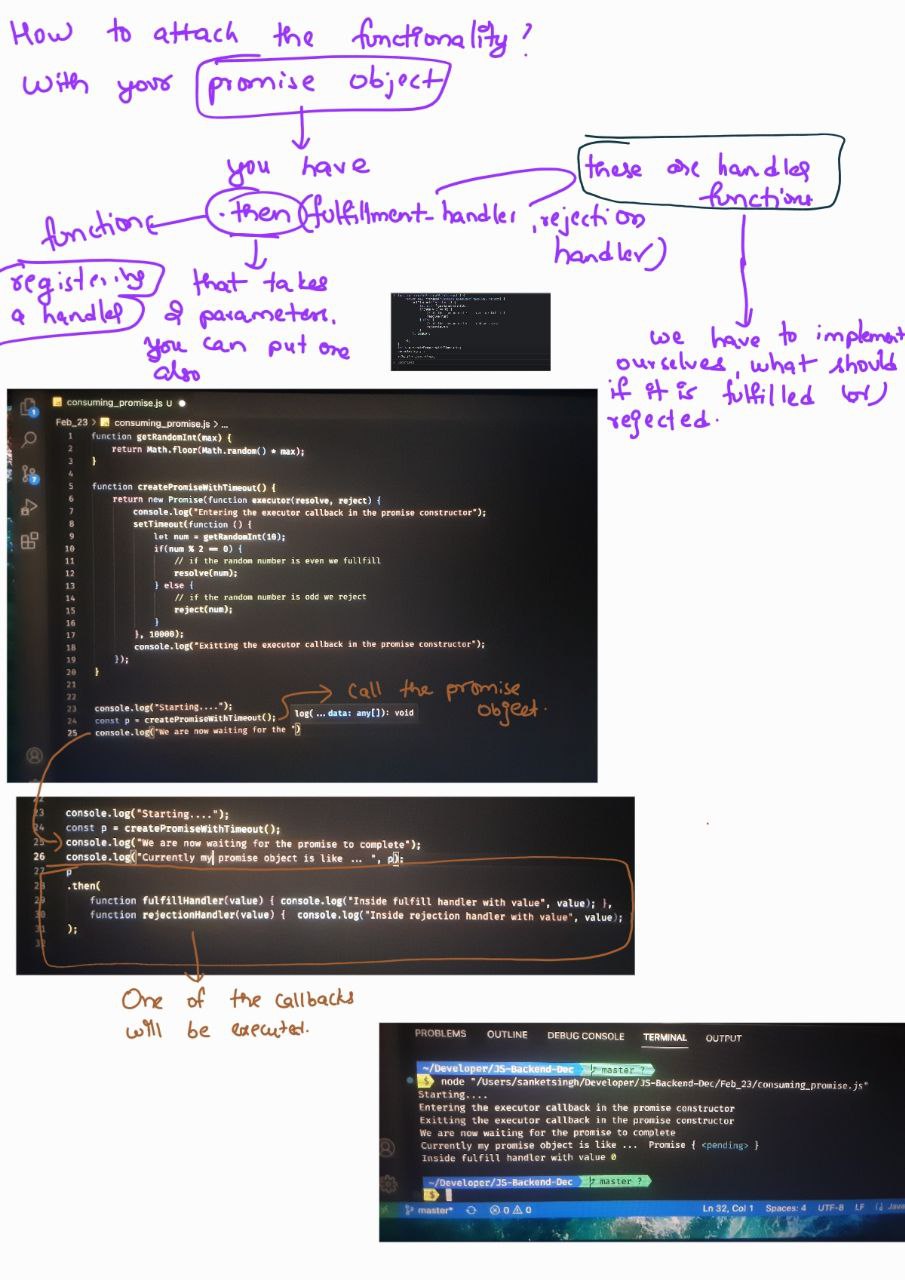 How to attach the functionality?
With your promise object
you have
these are handler
functions
function
.then (fulfillment-handler, rejection
handler)
registering
a handler
that takes
2 parameters.
you can put one
also
we have to implement
ourselves, what should
if it is fulfilled (or)
rejected.
consuming_promise.js U ●
Feb_23 > consuming_promise.js > ...
1 function getRandomInt(max) {
2 return Math.floor(Math.random() * max);
3 }
4
5 function createPromiseWithTimeout() {
6 return new Promise(function executor(resolve, reject) {
7 console.log("Entering the executor callback in the promise constructor");
8 setTimeout(function () {
9 let num = getRandomInt(10);
10 if(num % 2 == 0) {
11 // if the random number is even we fullfill
12 resolve(num);
13 } else {
14 // if the random number is odd we reject
15 reject(num);
16 }
17 }, 10000);
18 console.log("Exitting the executor callback in the promise constructor");
19 });
20 }
21
22
23 console.log("Starting....");
24 const p = createPromiseWithTimeout();
25 console.log("We are now waiting for the ")
log(...data: any[]): void
call the promise
object.
22
23 console.log("Starting....");
24 const p = createPromiseWithTimeout();
25 console.log("We are now waiting for the promise to complete");
26 console.log("Currently my promise object is like ... ", p);
27 p
28 .then(
29 function fulfillHandler(value) { console.log("Inside fulfill handler with value", value); },
30 function rejectionHandler(value) { console.log("Inside rejection handler with value", value);
31 );
32
One of the callbacks
will be executed.
PROBLEMS OUTLINE DEBUG CONSOLE TERMINAL OUTPUT
~/Developer/JS-Backend-Dec master ?
$ node "/Users/sanketsingh/Developer/JS-Backend-Dec/Feb_23/consuming_promise.js"
Starting....
Entering the executor callback in the promise constructor
Exitting the executor callback in the promise constructor
We are now waiting for the promise to complete
Currently my promise object is like ... Promise { <pending> }
Inside fulfill handler with value 0
~/Developer/JS-Backend-Dec master ?
$
master* 0 0 Ln 32, Col 1 Spaces: 4 UTF-8 LF Java